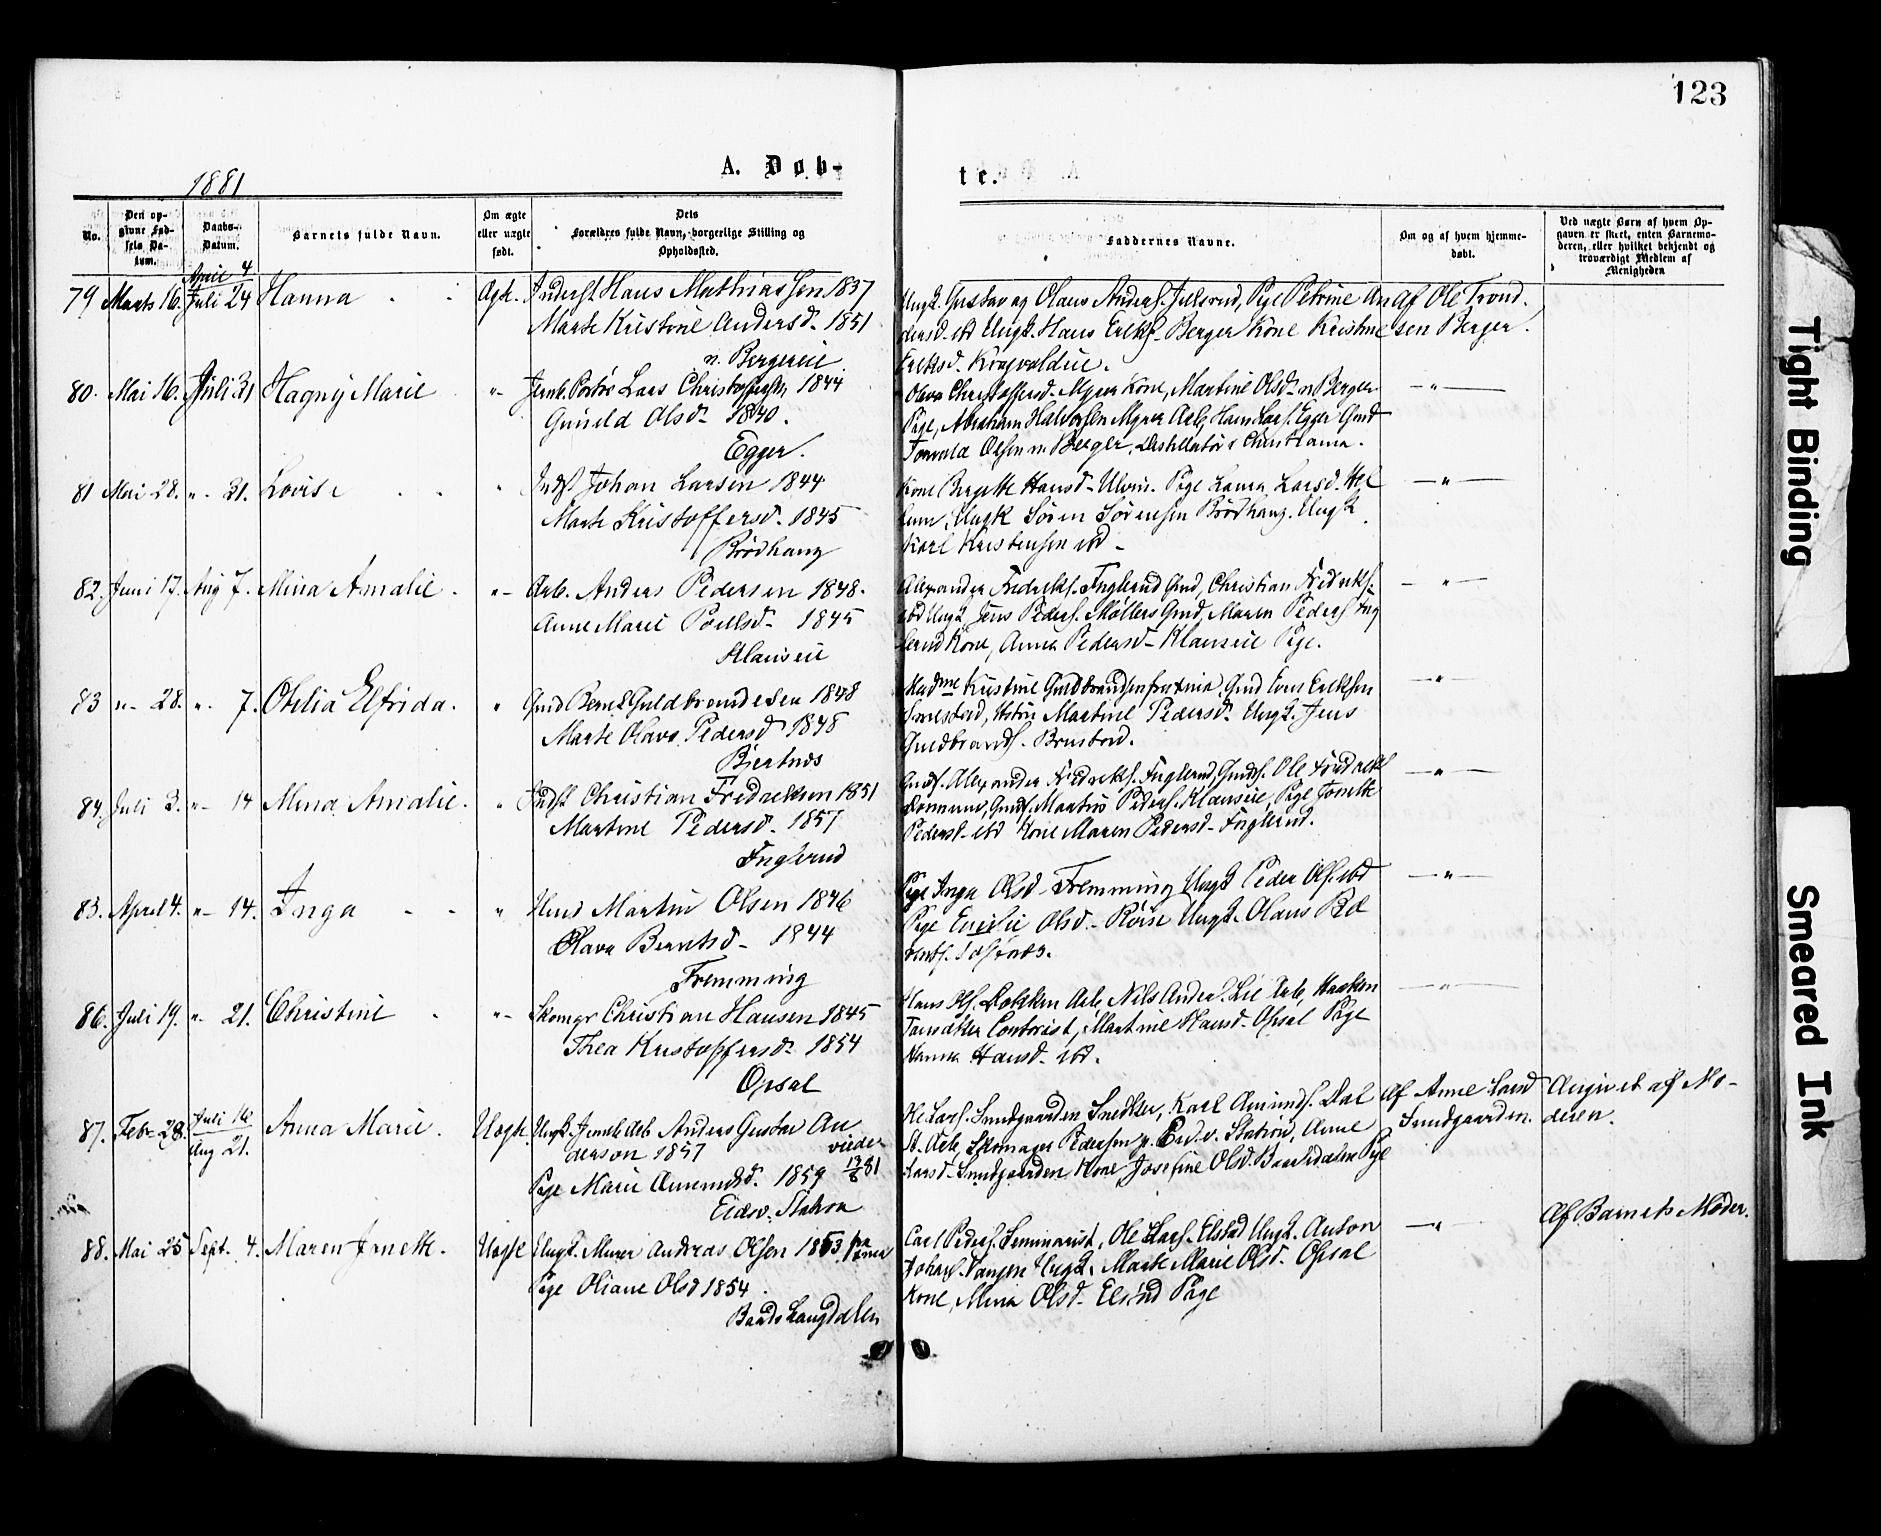 123
A. Døb-
te.
1881
No.
Den op-
givne Fød-
sels Da-
tum.
Daabs-
Datum.
Barnets fulde Navn.
Om ægte
eller uægte
født.
Dets
Forældres fulde Navn, borgerlige Stilling og
Opholdssted.
Faddernes Navne.
Om og af hvem hjemme-
døbt.
Ved uægte Børn af hvem Op-
gaven er skeet, enten Barnemo-
deren, eller hvilket bekjendt og
troværdigt Medlem af
Menigheden
April 4
79 Marts 16. Juli 24 Hanna Ægt. Inderst Hans Mathiassen 1837
Marte Kristine Andersd. 1851
n. Bergereie
Ungk. Gustav og Olaus Anders. Julsrud, Pige Petrine An
dersd. ibd Ungk. Hans Eriks. Berger Kone Kristine
Eriksd.
Af Ole Trond.
sen Berger.
80. Mai 16. Juli 31 Hagny Marie "- Jernb. Lars Christoffers. 1844
Gunild Olsd. 1840.
Egger.
Olava Christoffersd. Myrer Kone, Martine Olsd. n Berger
Pige, Abraham Halvorsen Myrer Arb, Hans Lars. Egger Gmd
Torvald Olsen n Berger, Destillatør i Christiania.
—"—
81 Mai 28. "- 31. Lovise " Indst Johan Larsen 1844
Marte Kristoffersd. 1845
Brødhang
Kone Birgitte Hansd. Ulvin. Pige Laura Larsd.
Ungk Søren Sørensen Brødhang. Ungk
Karl Kristensen ibd -
—"—
82. Juni 17. Aug 7. Mina Amalie. "- Arb. Anders Pedersen 1848.
Anne Marie Poulsd. 1845
Klauseie
Alexander Fredriks. Englerud Gmd, Christian Fredriks.
ibd Ungk Jens Peders. Møllers Gmd, Maren Peders. Eng
lerud Kone, Anna Pedersd. Klauseie Pige.
—"—
83 "- 28. "- 7. Othilia Elfrida. " Gmd Bernt Guldbrandsen 1848
Marte Olava Pedersd 1848
Bjertnæs
Madme Kristine Guldbrandsen, Gmd Even Eriksen
Martine Pedersd. Ungk. Jens
Guldbrands. Brustad.
—"—
84. Juli 3. "- 14 Mina Amalie. " Indst Christian Fredriksen 1851
Martine Pedersd. 1857
Englerud
Gmds. Alexander Fredriks. Englerud, Gmds. Ole Fredriks
Gmds. Martin Peders. Klauseie, Pige Jonette
Pedersd. ibd Kone Maren Pedersd. Englerud.
—"—
85. April 4. "- 14. Inga " Huus Martin Olsen 1846
Olava Berntsd. 1844
Fremming
Pige Inga Olsd. Fremming Ungk Peder Ols. ibd
Pige Emilie Olsd. Røise Ungk. Olaus Be
rnts.
—"—
86. Juli 19. "- 21. Christine "- Skomgr Christian Hansen 1845
Thea Kristoffersd. 1854
Opsal
Hans Ols. Dokken Arb, Nils Anders. Lie Arb, Haaken
Contorist, Martine Hansd. Opsal Pige
Hanna Hansd. ibd.
—"—
87. Febr 28. Juli 16
Aug 21.
Anna Marie. Uægt. Ungk. Jernb. Arb Anders Gustav An
derson 1857
Pige Marie Amundsd. 1859
Eidsv. Station
Ole Lars. Sundgaarden Snedker, Karl Amunds. Dal
St. Arb, Skomager Pedersen p. Eidsv. Station, Anne
Larsd. Sundgaarden Kone, Josefine Olsd. Pige
Af Anne Larsd
Sundgaarden.
Angivet af Mo-
deren.
88. Mai 25 Sept. 4. Maren Jonette. Uægte Ungk. Murer Andreas Olsen 1853
Pige Oliane Olsd 1854.
Baadshaugdalen
Carl Peders. Seminarist, Ole Lars. Elstad Ungk. Anton
Johans. Vangen Ungk, Marte Marie Olsd. Opsal
Kone, Mina Olsd. Pige
—"—
Af Barnets Moder.
Tight Binding
Smeared Ink